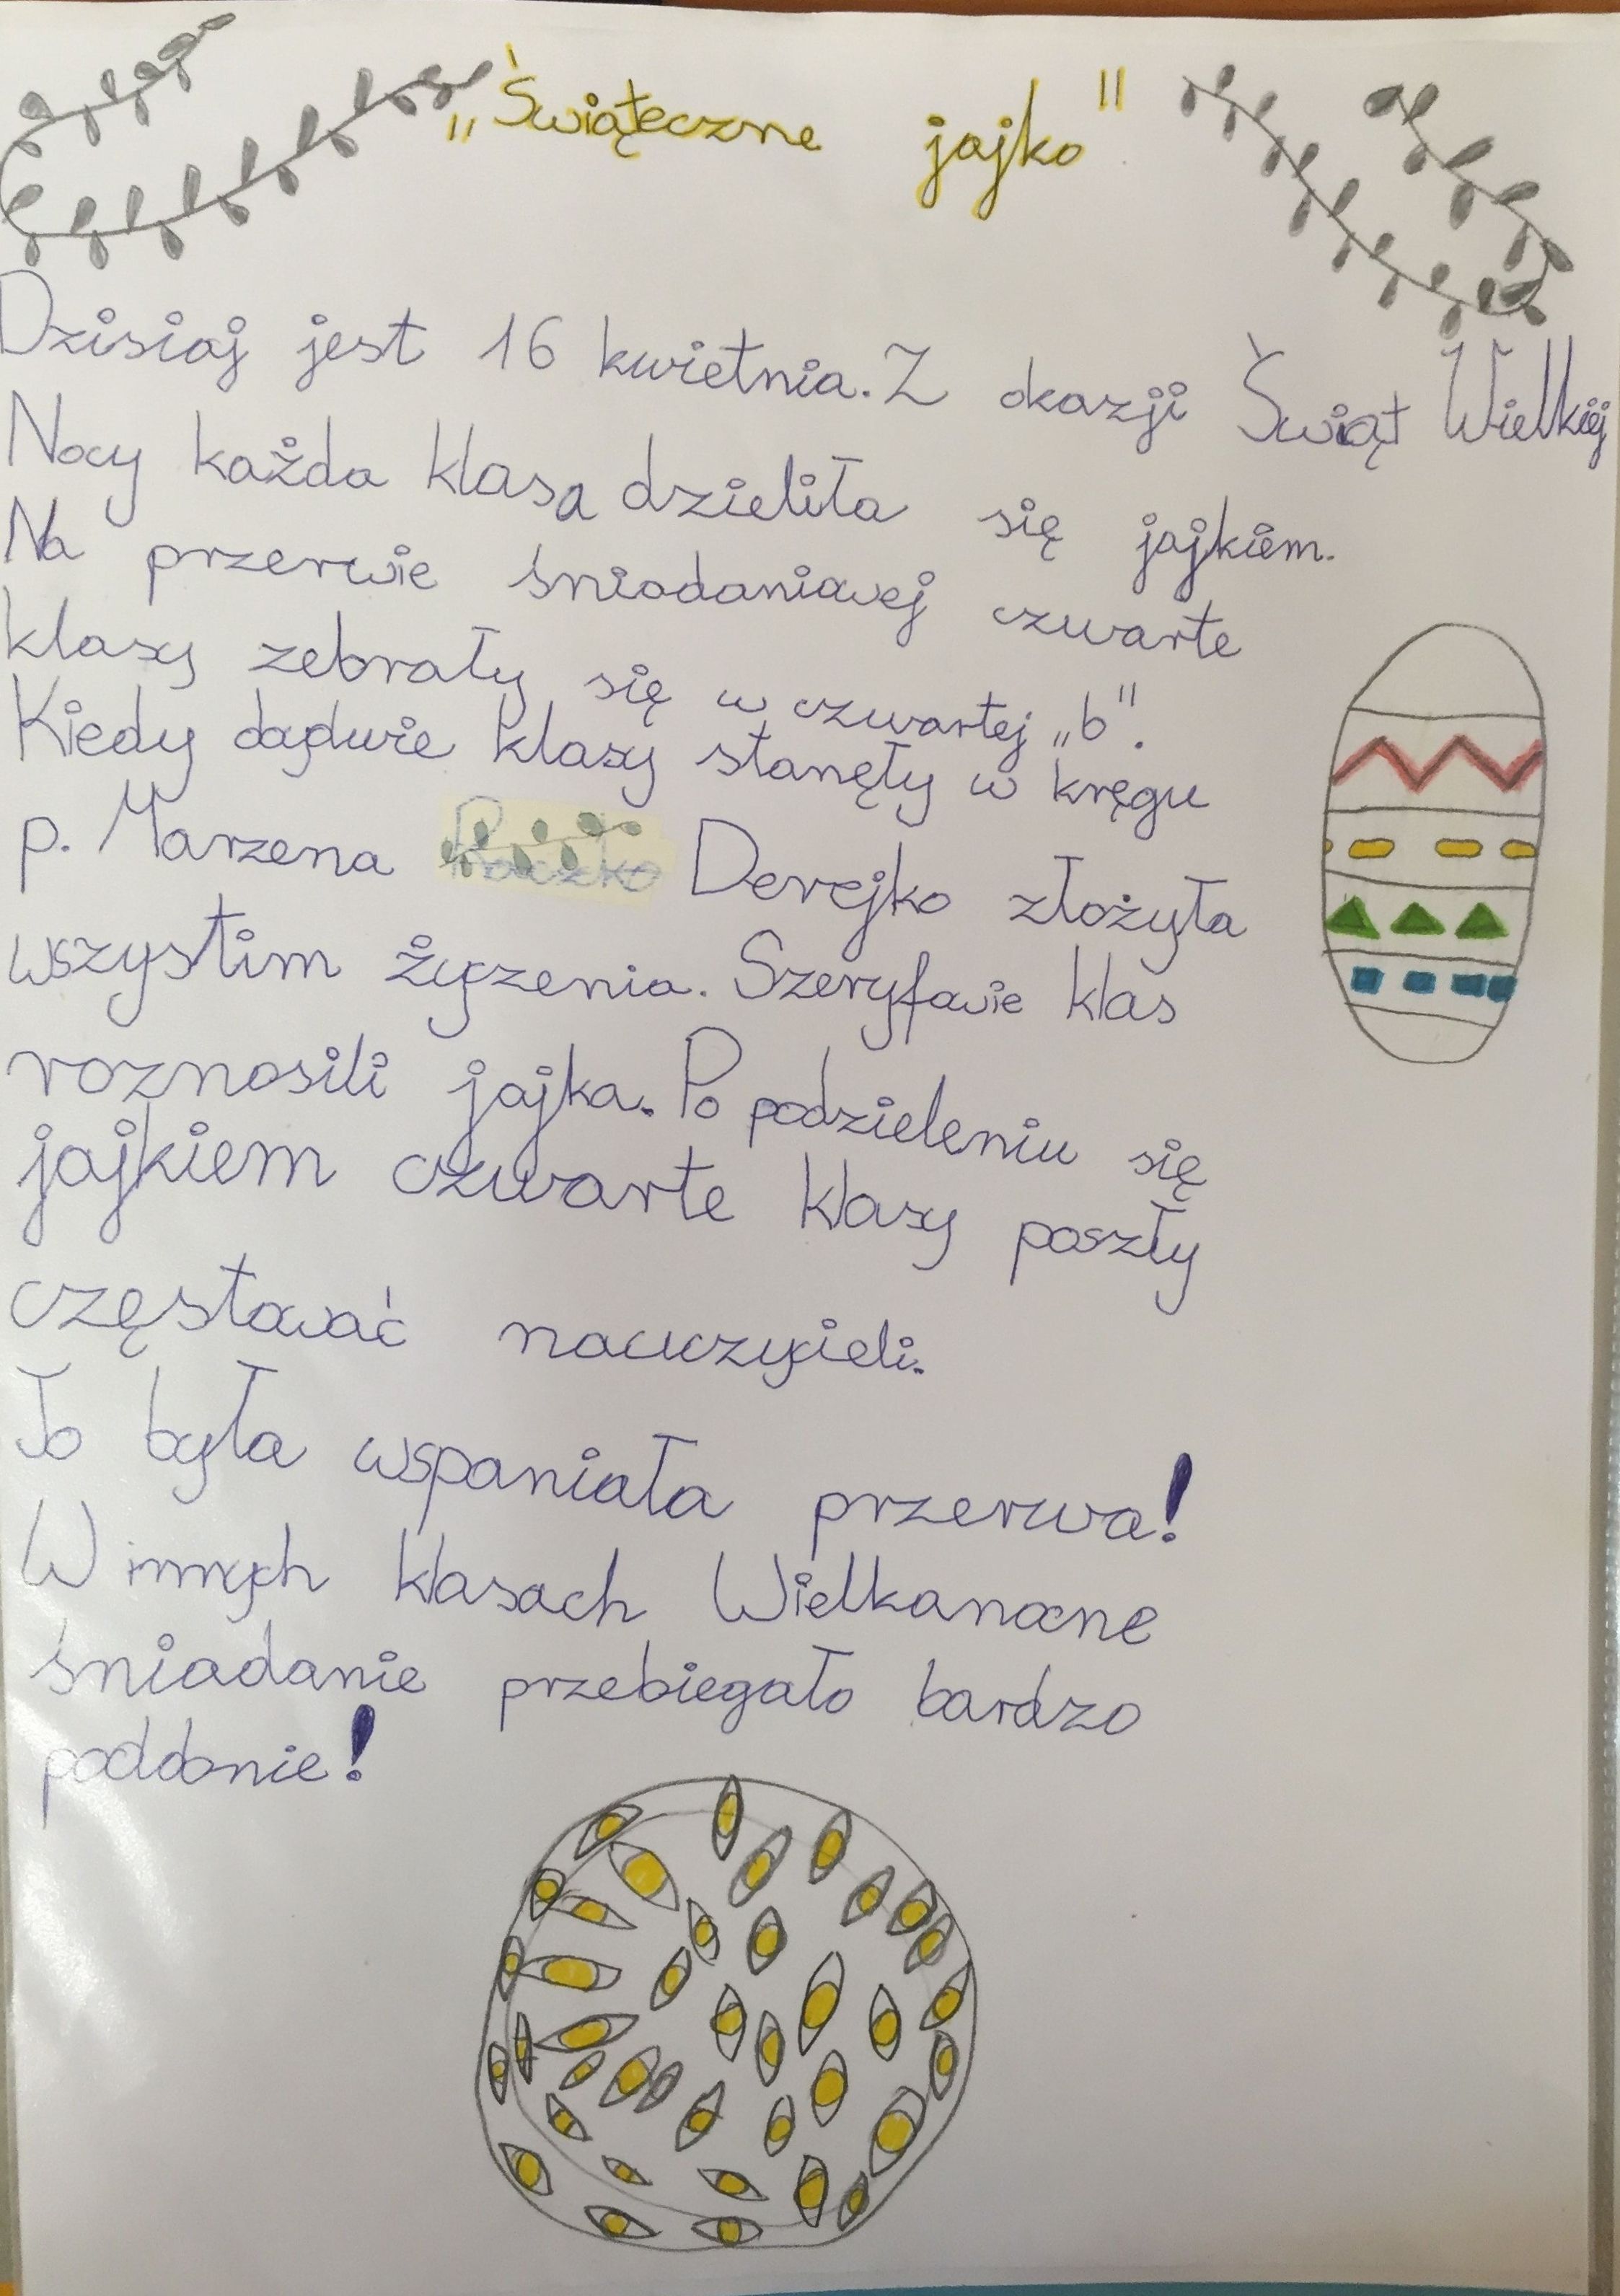 „Świąteczne jajko"
Dzisiaj jest 16 kwietnia. Z okazji Świąt Wielkiej
Nocy każda klasa dzieliła się jajkiem.
Na przerwie śniadaniowej czwarte
klasy zebrały się w czwartej „b".
Kiedy klasy stanęły w kręgu
p. Marzena Derejko złożyła
wszystim życzenia. Szeryfowie klas
roznosili jajka. Po podzieleniu się
jajkiem czwarte klasy poszły
częstować nauczycieli.
To była wspaniała przerwa!
W innych klasach Wielkanocne
śniadanie przebiegało bardzo
poddonie!